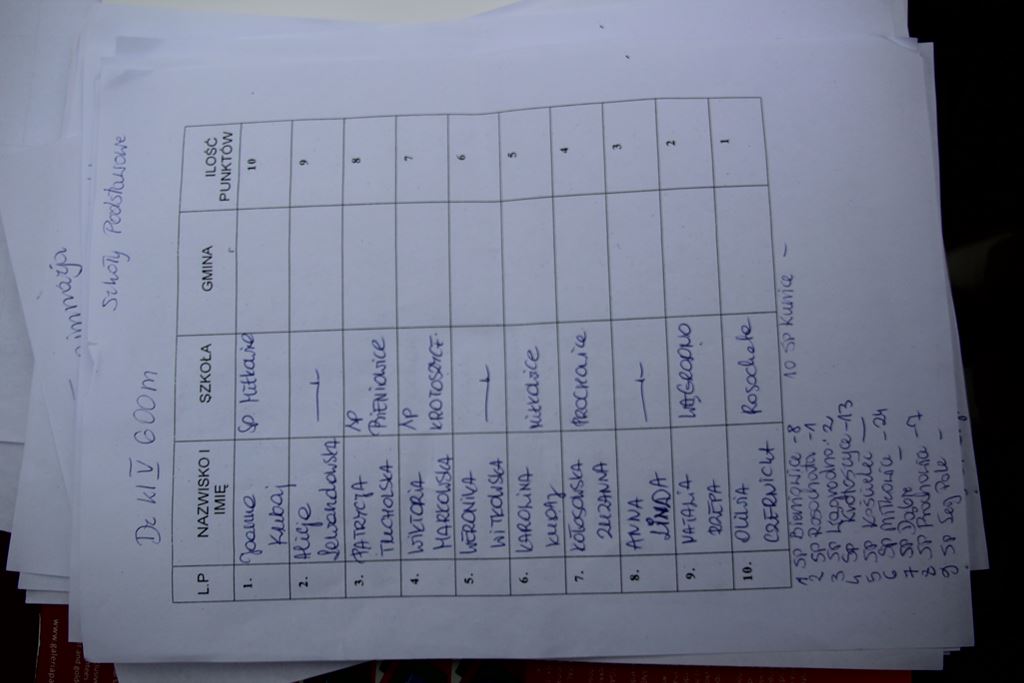 Szkoły Podstawowe
Dz kl IV 600m
L.P NAZWISKO I IMIĘ SZKOŁA GMINA ILOŚĆ PUNKTÓW
1. Joanna Kubaj SP Miłkowice 10
2. Alicja Lewandowska —〃— 9
3. PATRYCJA TUCHOLSKA SP BIENIOWICE 8
4. WIKTORIA MARKOWSKA SP KROTOSZYC. 7
5. WERONIKA WITKOWSKA —〃— 6
6. KAROLINA KUBAJ MIŁKOWICE 5
7. KŁOSOWSKA ZUZANNA PROCHOWICE 4
8. ANNA LINDA —〃— 3
9. NATALIA RZEPA LEGRODNO 2
10. OLIWIA CZERNICKA Rosochata 1
1 SP Bieniowice - 8
2 SP Rosochata - 1
3 SP Legrodno 2
4 SP Krotoszyce - 13
5 SP Koskowice —
6 SP Miłkowice - 24
7 SP Dąbie —
8 SP Prochowice - 7
9 SP Leg Pole -
10 SP Kunice -
imnazja
www.galeriapa